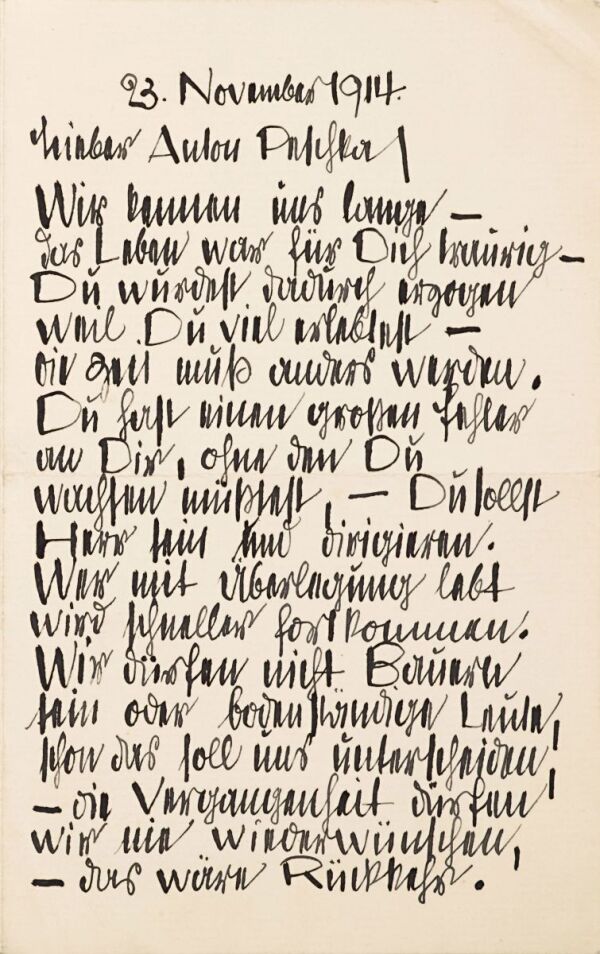 23. November 1914.
Lieber Anton Peschka!
Wir kennen uns lange –
das Leben war für Dich traurig –
Du wurdest dadurch erzogen
weil Du viel erlebtest –
die Zeit muß anders werden.
Du hast einen großen Fehler
an Dir, ohne den Du
wachsen müßtest, – Du sollst
Herr sein und dirigieren.
Wer mit Überlegung lebt
wird schneller fortkommen.
Wir dürfen nicht Bauern
sein oder bodenständige Leute,
schon das soll uns unterscheiden,
– die Vergangenheit dürfen
wir nie wiederwünschen,
– das wäre Rückkehr.